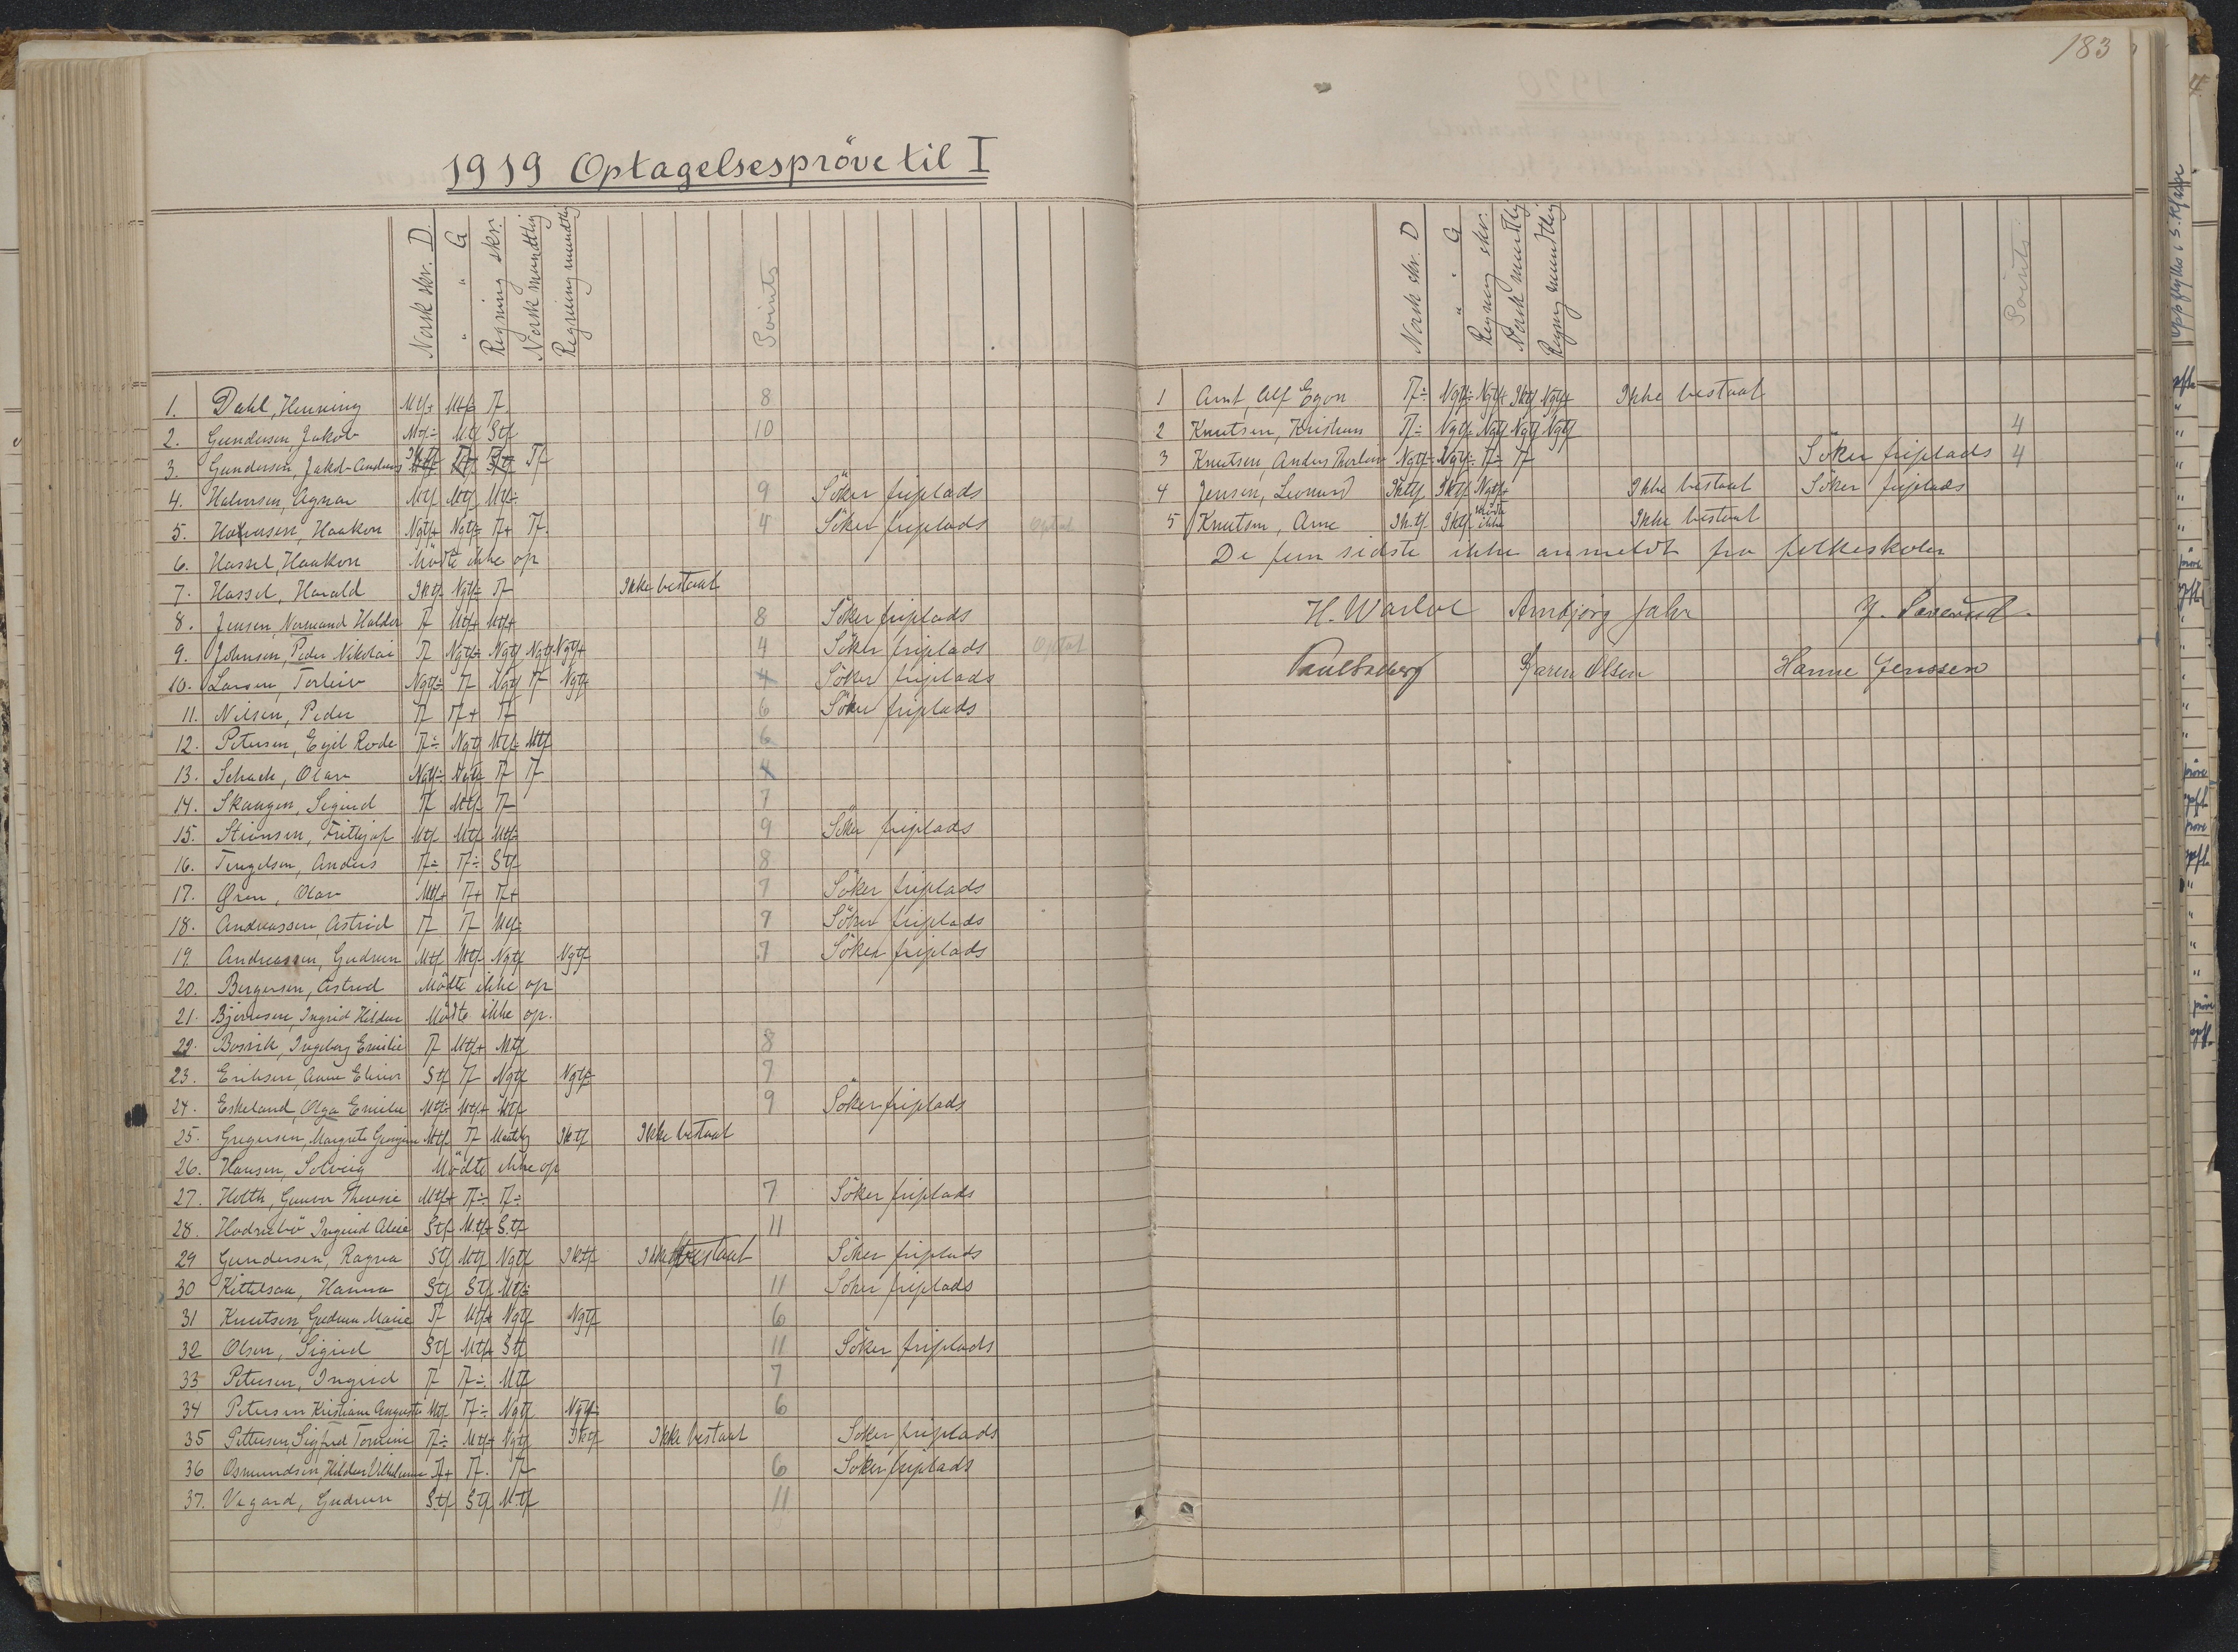 183
1919 Optagelsespröve til I
Norsk skr. D. " " G Regning skr. Norsk mundtlig Regning mundtlig Points
1. Dahl, Henning Mtf+ Mtf÷ Tf. 8
2. Gundersen, Jakob Mtf÷ Mtf Stf 10
3. Gundersen, Jakob Andreas Tf
4. Halvorsen, Agnar Mtf Mtf Mtf÷ 9 Söker friplads
5. Halvorsen, Haakon Ngtf+ Ngtf÷ Tf+ Tf. 4 Söker friplads Optat
6. Hassel, Haakon Mödte ikke op
7. Hassel, Harald Iktf Ngtf÷ Tf Ikke bestaat
8. Jensen, Normand Halder Tf Mtf+ Mtf+ 8 Söker friplads
9. Johnsen, Peder Nikolai Tf Ngtf÷ Ngtf Ngtf Ngtf+ 4 Söker friplads Optat
10. Larsen, Torleiv Ngtf÷ Tf Ngtf Tf Ngtf 4 Söker friplads
11. Nilsen, Peder Tf Tf+ Tf 6 Söker friplads
12. Petersen, Egil Rode Tf÷ Ngtf Mtf÷ Mtf 6
13. Schack, Olav Ngtf÷ Ngtf Tf Tf 4
14. Skaugen, Sigurd Tf Mtf÷ Tf 7
15. Stiansen, Frithjof Mtf Mtf Mtf÷ 9 Söker friplads
16. Tengelsen, Anders Tf÷ Tf÷ Stf 8
17. Gren, Olav Mtf+ Tf+ Tf+ 7 Söker friplads
18. Andreassen, Astrid Tf Tf Mtf÷ 7 Söker friplads
19 Andreassen, Gudrun Mtf Mtf Ngtf Ngtf 7 Söker friplads
20. Bergersen, Astrid Mödte ikke op
21. Björnsen, Ingrid Hildur Mödte ikke op.
22. Bosvik, Ingeborg Emilie Tf Mtf+ Mtf 8
23. Eriksen, Anna Elinor Stf Tf Ngtf Ngtf÷ 7
24. Eskeland, Olga Emilie Mtf÷ Mtf+ Mtf 9 Söker friplads
25. Gregersen, Margrete Mtf Tf Iktf Ikke bestaat
26. Hansen, Solveig Mödte ikke op
27. Holth, Gunvor Theresie Mtf+ Tf÷ Tf÷ 7 Söker friplads
28. Hodnebö Ingrid Alise Stf Mtf+ S.tf 11
29 Gundersen, Ragna Stf Mtf Ngtf Iktf Ikke bestaat Söker friplads
30 Kittelsaa, Hanna Stf Stf Mtf÷ 11 Söker friplads
31 Knutsen Gudrun Marie Tf Mtf+ Ngtf Ngtf 6
32 Olsen, Sigrid Stf Mtf+ Stf 11 Söker friplads
33 Petersen, Ingrid Tf Tf÷ Mtf 7
34 Petersen Kristiane Augusta Mtf Tf÷ Ngtf Ngtf÷ 6
35 Pettersen, Sigfrid Tomine Tf÷ Mtf+ Ngtf Iktf Ikke bestaat Söker friplads
36 Osmundsen, Hildur Vilhelmine Tf+ Tf. Tf 6 Söker friplads
37. Vegard, Gudrun Stf Stf M.tf 11
Norsk skr. D " " G Regning skr. Norsk mundtlig Regng mundtlig Points
1 Arnt, Alf Egon Tf÷ Ngtf÷ Ngtf+ Iktf Ngtf+ Ikke bestaat
2 Knutsen, Kristian Tf÷ Ngtf÷ Ngtf Ngtf Ngtf 4
3 Knutsen, Anders Thorleiv Ngtf÷ Ngtf÷ Tf÷ Tf Söker friplads 4
4 Jensen, Leonard Iktf Iktf Ngtf+ Ikke bestaat Söker friplads
5 Knutsen, Arne Ik.tf. Iktf mödte ikke Ikke bestaat
De fem sidste ikke anmeldt fra folkeskolen
H. Warloe Arnbjörg Jahr
Karen Olsen Hanne Jenssen